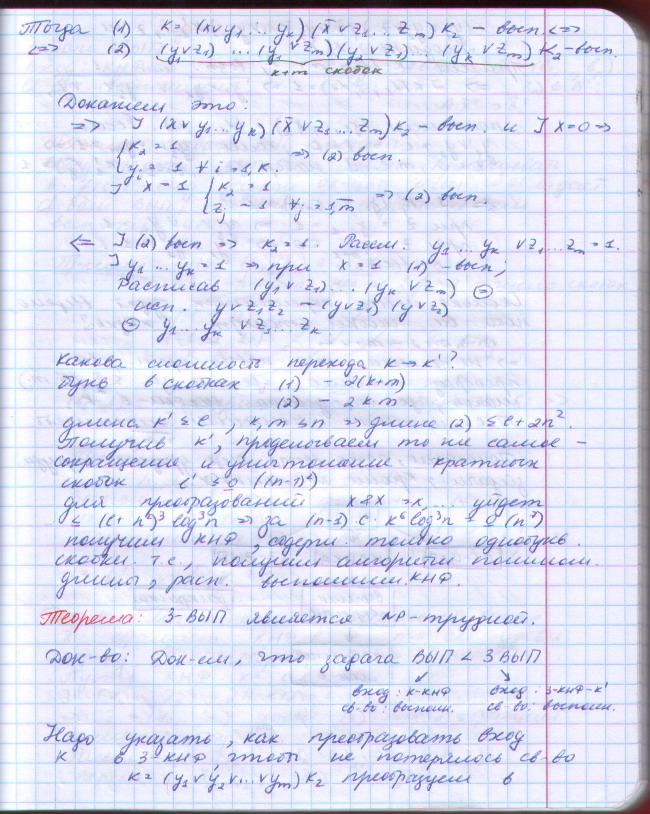 Тогда (1) K = (x∨y₁...yₖ)(x̄∨z₁...zₘ)K₂ – вып. <=>
<=> (2) (y₁∨z₁)...(y₁∨zₘ)(y₂∨z₁)...(yₖ∨zₘ)K₂-вып.
k+m скобок
Докажем это:
=> ] (x∨y₁...yₖ)(x̄∨z₁...zₘ)K₂ – вып. и ] x=0 =>
{K₂ = 1
yᵢ = 1 ∀i=1,k. => (2) вып.
] x = 1 {K₂ = 1
zⱼ = 1 ∀j=1,m => (2) вып.
<= ] (2) вып => K₂=1. Рассм. y₁...yₖ ∨z₁...zₘ=1.
] y₁...yₖ=1 => при x=1 (1) -вып;
Расписав (y₁∨z₁)...(yₖ∨zₘ) ⊜
исп. y∨z₁z₂ = (y∨z₁)(y∨z₂)
⊜ y₁...yₖ ∨z₁...zₖ.
Какова сложность перехода K→K'?
букв в скобках (1) – 2(k+m)
(2) – 2km.
длина K' ≤ l, k,m ≤n => длина (2) ≤l+2n².
Получив K', проделываем то же самое –
сокращение и уничтожение кратных
скобок l' ≤ ((n-1)²)
для преобразований x&x = x, ... уйдет
≤ (l+n²)³log³n => за (n-1)·c·
получим КНФ, содерж. только однобукв.
скобки. т.е., получим алгоритм полином.
длины, расп. выполним. КНФ.
Теорема: 3-ВЫП является NP-трудной.
Док-во: Док-ем, что задача ВЫП < 3 ВЫП
вход: K-КНФ вход: 3-КНФ-K'
св-во: выполн. св-во: выполн.
Надо указать, как преобразовать вход
K в 3-КНФ, чтобы не потерялось св-во
K = (y₁∨y₂∨...∨yₘ)K₂ преобразуем в